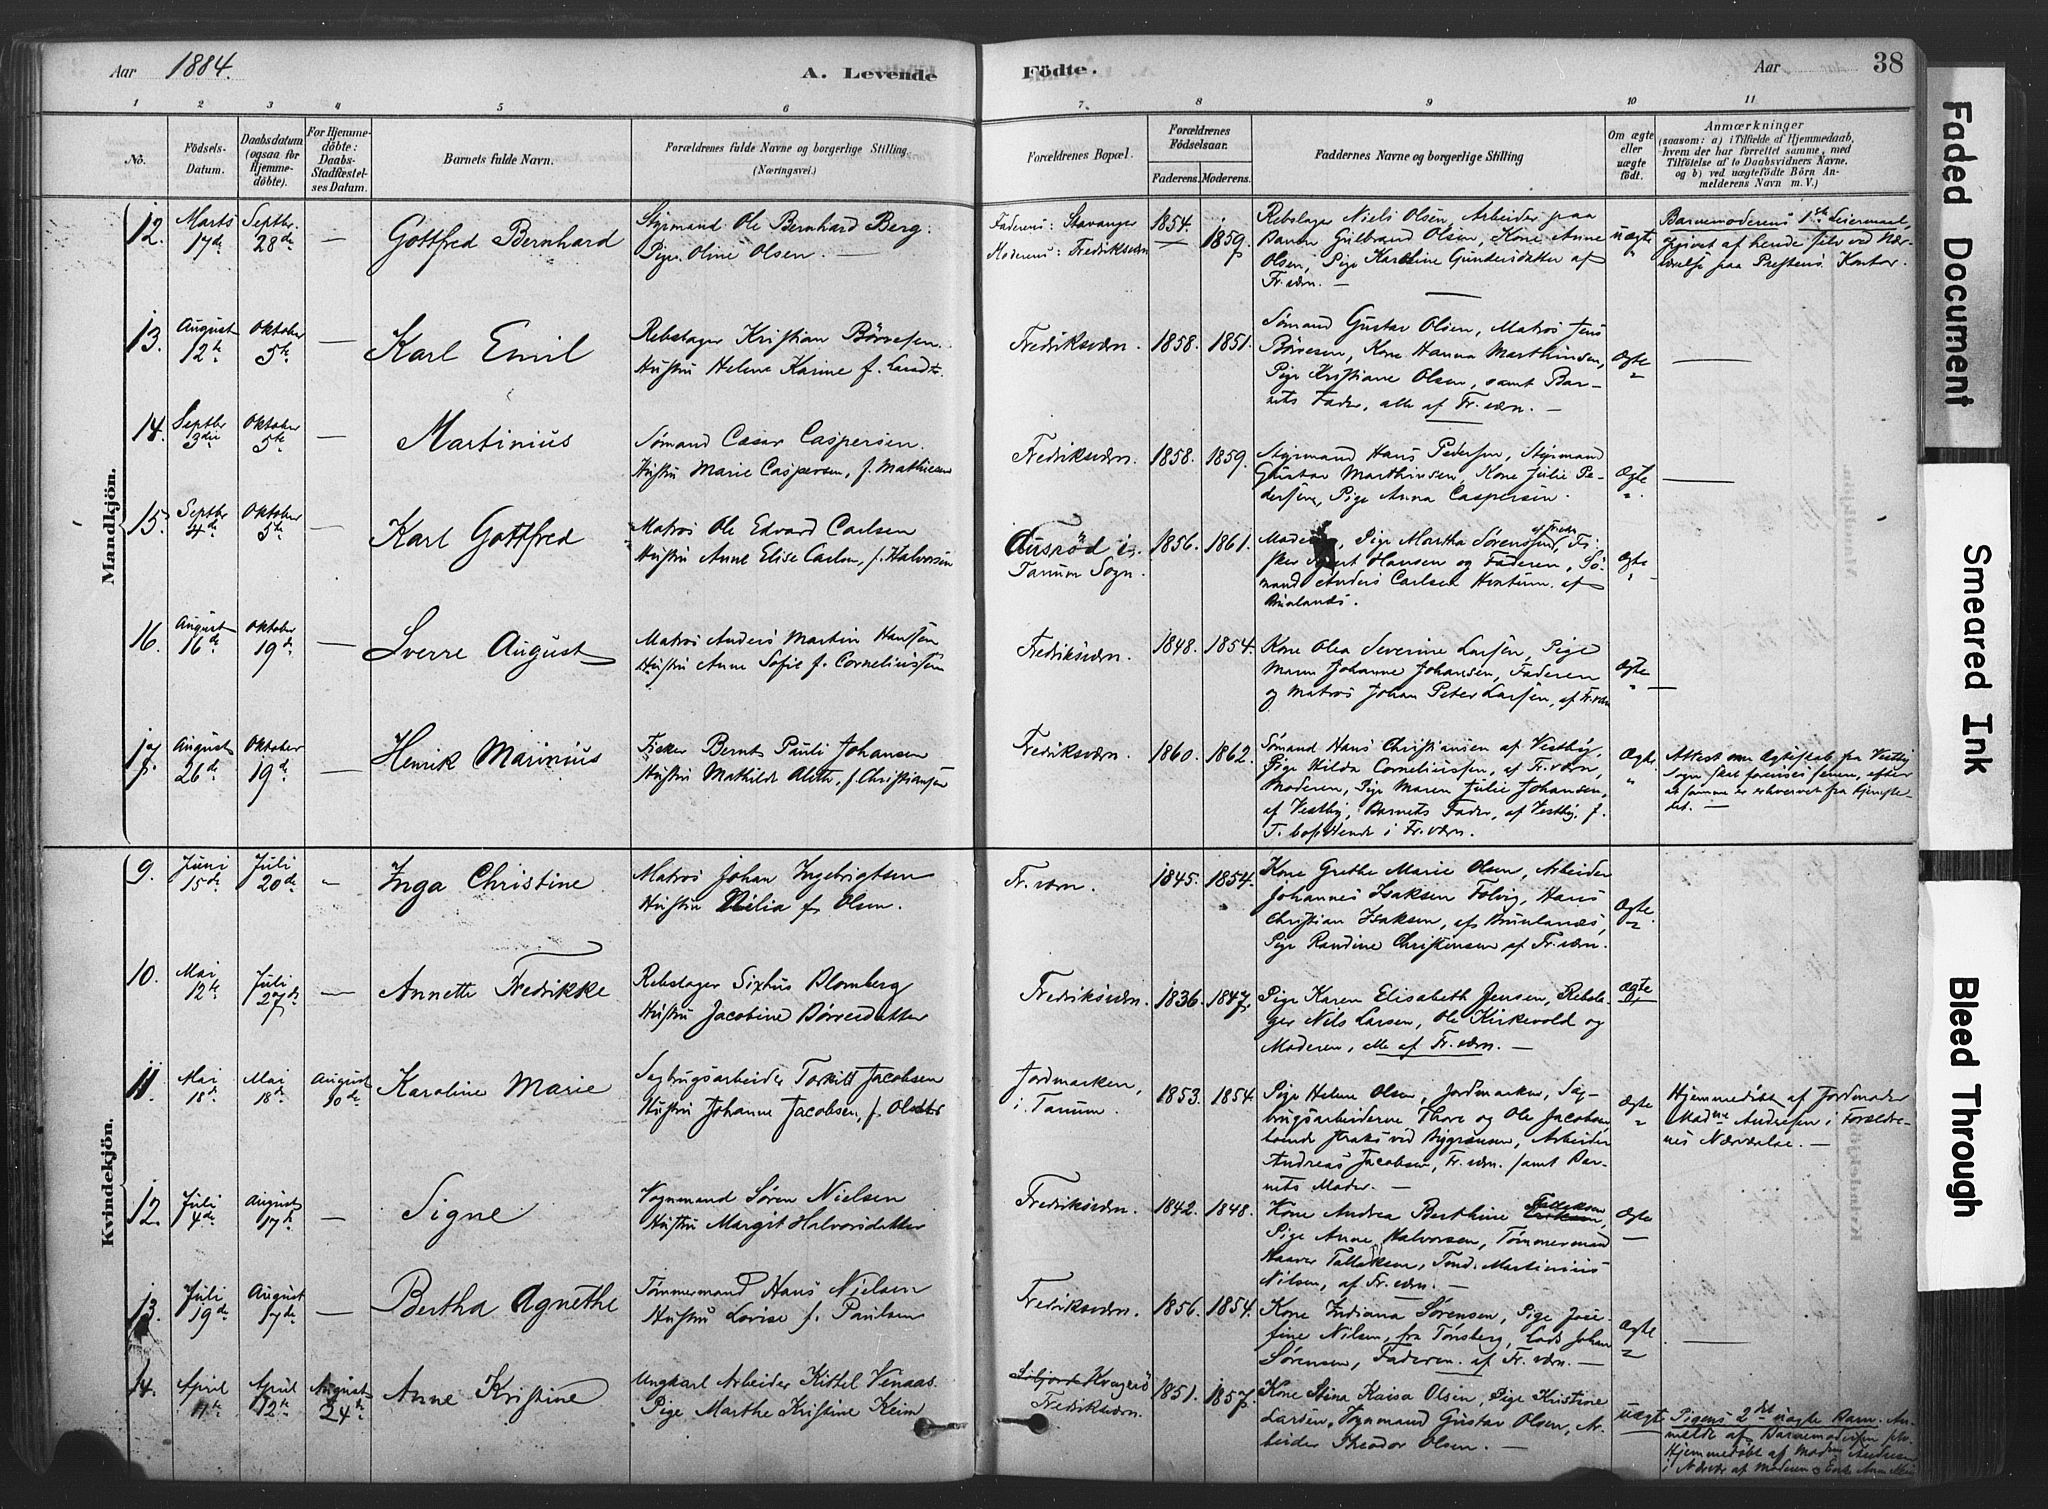 Aar 1884.
A. Levende
Födte.
Aar
38
1 2 3 4 5 6 7 8 9 10 11
No.
Födsels-
Datum.
Daabsdatum
(ogsaa for
Hjemme-
döbte).
For Hjemme-
döbte:
Daabs-
Stadfæstel-
ses Datum.
Barnets fulde Navn.
Forældrenes fulde Navne og borgerlige Stilling
(Næringsvei.)
Forældrenes Bopæl.
Forældrenes
Födselsaar.
Faderens. Moderens.
Faddernes Navne og borgerlige Stilling
Om ægte
eller
uægte
født.
Anmærkninger
(saasom: a) i Tilfælde af Hjemmedaab,
hvem der har forrettet samme, med
Tilföielse af to Daabsvidners Navne.
og b) ved uægtefödte Börn An-
melderens Navn m. V.)
Mandkjön.
12.
Marts
17de
Septbr.
28de
—
Gottfred Bernhard
Styrmand Ole Bernhard Berg.
Pige Oline Olsen. —
Faderens: Stavanger
Moderens: Fredriksværn
1854.
1859.
Rebslager Niels Olsen, Arbeider paa
Banen Gulbrand Olsen, Kone Anne
Olsen, Pige Karoline Gundersdatter af
Fr.værn. —
uægte
Barnemoderens 1ste Leiermaal,
opgivet af hende selv ved Nær-
værelse paa Prestens Kontor.
13.
August
12te
Oktober
5te
—
Karl Emil
Rebslager Kristian Börresen.
Hustru Helene Karine f. Lundt.
Fredriksværn.
1858.
1851.
Sømand Gustav Olsen, Matros Jens
Börresen, Kone Hanna Marthinsen,
Pige Kristiane Olsen, samt Bar-
nets Fader, alle af Fr.værn. —
Ægte
14.
Septbr
3die
Oktober
5te
—
Martinius
Sømand Cæsar Caspersen.
Hustru Marie Caspersen, f. Mathiesen
Fredriksværn.
1858.
1859.
Styrmand Hans Pedersen, Styrmand
Gustav Marthinsen, Kone Julie Pe-
dersen, Pige Anna Caspersen.
Ægte
15.
Septbr
4de
Oktober
5te
—
Karl Gottfred
Matros Ole Edvard Carlsen
Hustru Anne Elise Carlsen, f. Halvorsen
i
Tanum Sogn.
1856.
1861.
Moderen, Pige Martha Sørenssen, af Fr.værn Fi-
sker Hansen og Faderen, Sö-
mand Anders Carlsen Hentum. af
Brunlanæs.
Ægte
16.
August
16de
Oktober
19de
—
Sverre August
Matros Anders Martin Hansen
Hustru Anne Sofie f. Corneliussen
Fredriksværn.
1848.
1854.
Kone Olea Severine Larsen, Pige
Maren Johanne Johansen, Faderen
og Matros Johan Peter Larsen, af Fr.værn
Ægte
17.
August
26de
Oktober
19de
—
Henrik Marinius
Fisker Bernt Pauli Johansen
Hustru Mathilde f. Christiansen
Fredriksværn.
1860.
1862.
Sømand Hans Christiansen af Vestby,
Pige Hilda Corneliussen, af Fr.værn,
Moderen, Pige Maren Julie Johansen,
af Vestby, Barnets Fader, af Vestby, f.
T. bosiddende i Fr.værn.
Ægte
Attest om Ægteskab fra Vestby
Sogn skal forevises senere, efter
at samme er erhvervet fra Hjemste-
det. —
Kvindekjön.
9.
Juni
15de
Juli
20de
Inga Christine
Matros Johan Ingebrigtsen
Hustru Nilia f. Olsen.
Fr.værn.
1845.
1854.
Kone Grethe Marie Olsen, Arbeider
Johannes Isaksen Folvig, Hans
Christian Isaksen, af Brunlanæs,
Pige Randine Christensen af Fr.værn.
Ægte.
10.
Mai
12te
Juli
27de
—
Annette Fredrikke
Rebslager Sixtus Blomberg
Hustru Jacobine Börresdatter
Fredriksværn.
1836.
1847.
Pige Karen Elisabeth Jensen, Rebsla-
ger Nils Larsen, Ole Kirkevold og
Moderen, alle af Fr.værn. —
ægte
11.
Mai
18de
Mai
18de
August
10de
Karoline Marie
Sagbrugsarbeider Torkild Jacobsen
Hustru Johanne Jacobsen, f. Olsdtr
Jordmarken,
i Tanum.
1853.
1854.
Pige Helene Olsen, Jordmarken, Sag-
brugsarbeiderne Thore og Ole Jacobsen
boende straks ved Bygrænsen, Arbeider
Andreas Jacobsen, Fr.værn. samt Bar-
nets Moder. —
Ægte
Hjemmedöbt af Jordmoder
Madme Andresen i Forældre-
nes Nærværelse. —
12.
Juli
4de
August
17de
—
Signe
Vognmand Søren Nielsen
Hustru Margit Halvorsdatter
Fredriksværn.
1842.
1848.
Kone Andrea Berthine Tallaksen,
Pige Anne Halvorsen, Tømmermand
Haaver Tallaksen, Martinius
Nilsen, af Fr.værn. —
Ægte
13.
Juli
19de
August
17de
—
Bertha Agnethe
Tømmermand Hans Nielsen
Hustru Lovise f. Paulsen
Fredriksværn.
1856.
1854.
Kone Indiana Sørensen, Pige Jose-
fine Nilsen, fra Tønsberg, Lods Johan
Sørensen, Faderen. af Fr.værn. —
Ægte
14.
April
11te
April
12te
August
24de
Anne Kristine
Ungkarl Arbeider Kittel Venaas
Pige Marthe Kristine Keim
Kragerö
Fredriksværn.
1851.
1857.
Kone Stina Kaisa Olsen, Pige Kristine
Larsen, Vognmand Gustav Olsen, Ar-
beider Theodor Olsen. —
uægte
Pigens 2det uægte Barn. An-
meldt af Barnemoderen selv.
Hjemmedöbt af Madm Andresen
i Nærvær af Moderen & Enke Anne
Faded Document
Smeared Ink
Bleed Through